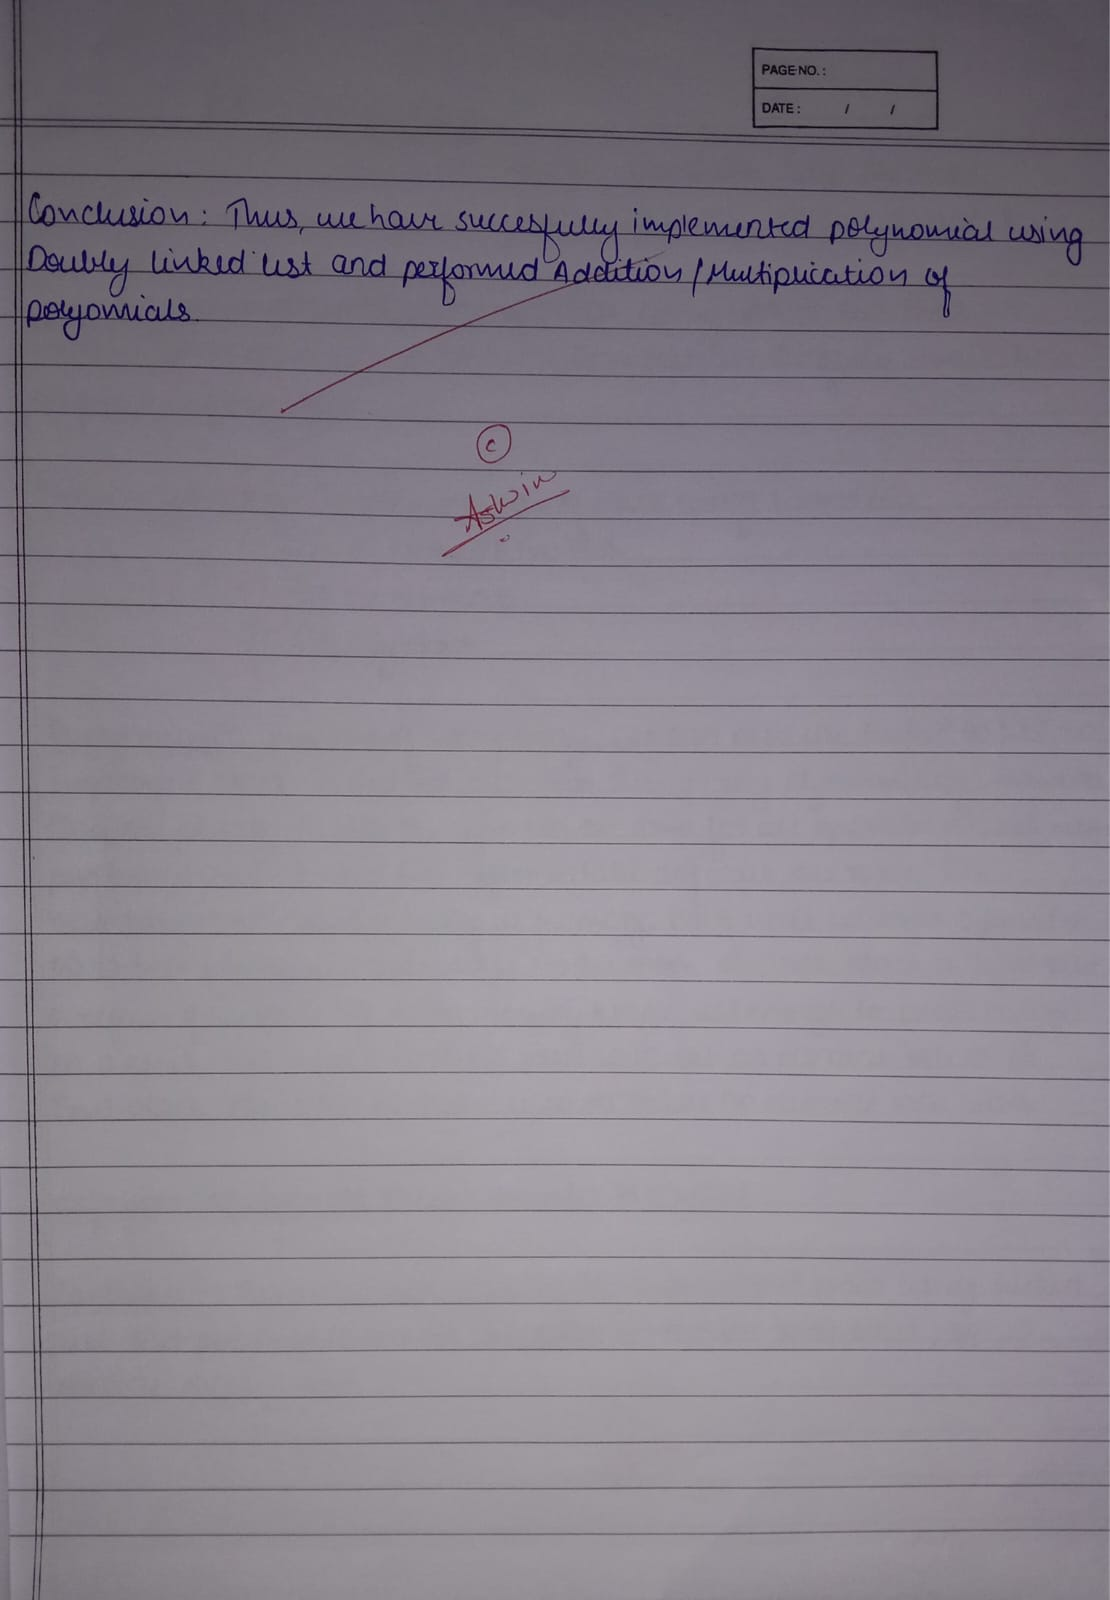 PAGE NO.:
DATE: / /
Conclusion: Thus, we have succesfully implemented polynomial using
Doubly linked list and performed Addition/Multiplication of
polyomials.
C
Ashwin